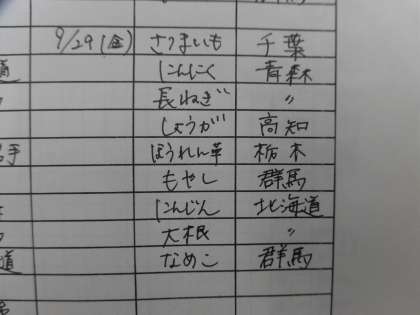 9/29(金) さつまいも 千葉
道 にんにく 青森
長ねぎ 〃
しょうが 高知
手 ほうれん草 栃木
もやし 群馬
にんじん 北海道
大根 〃
道 なめこ 群馬